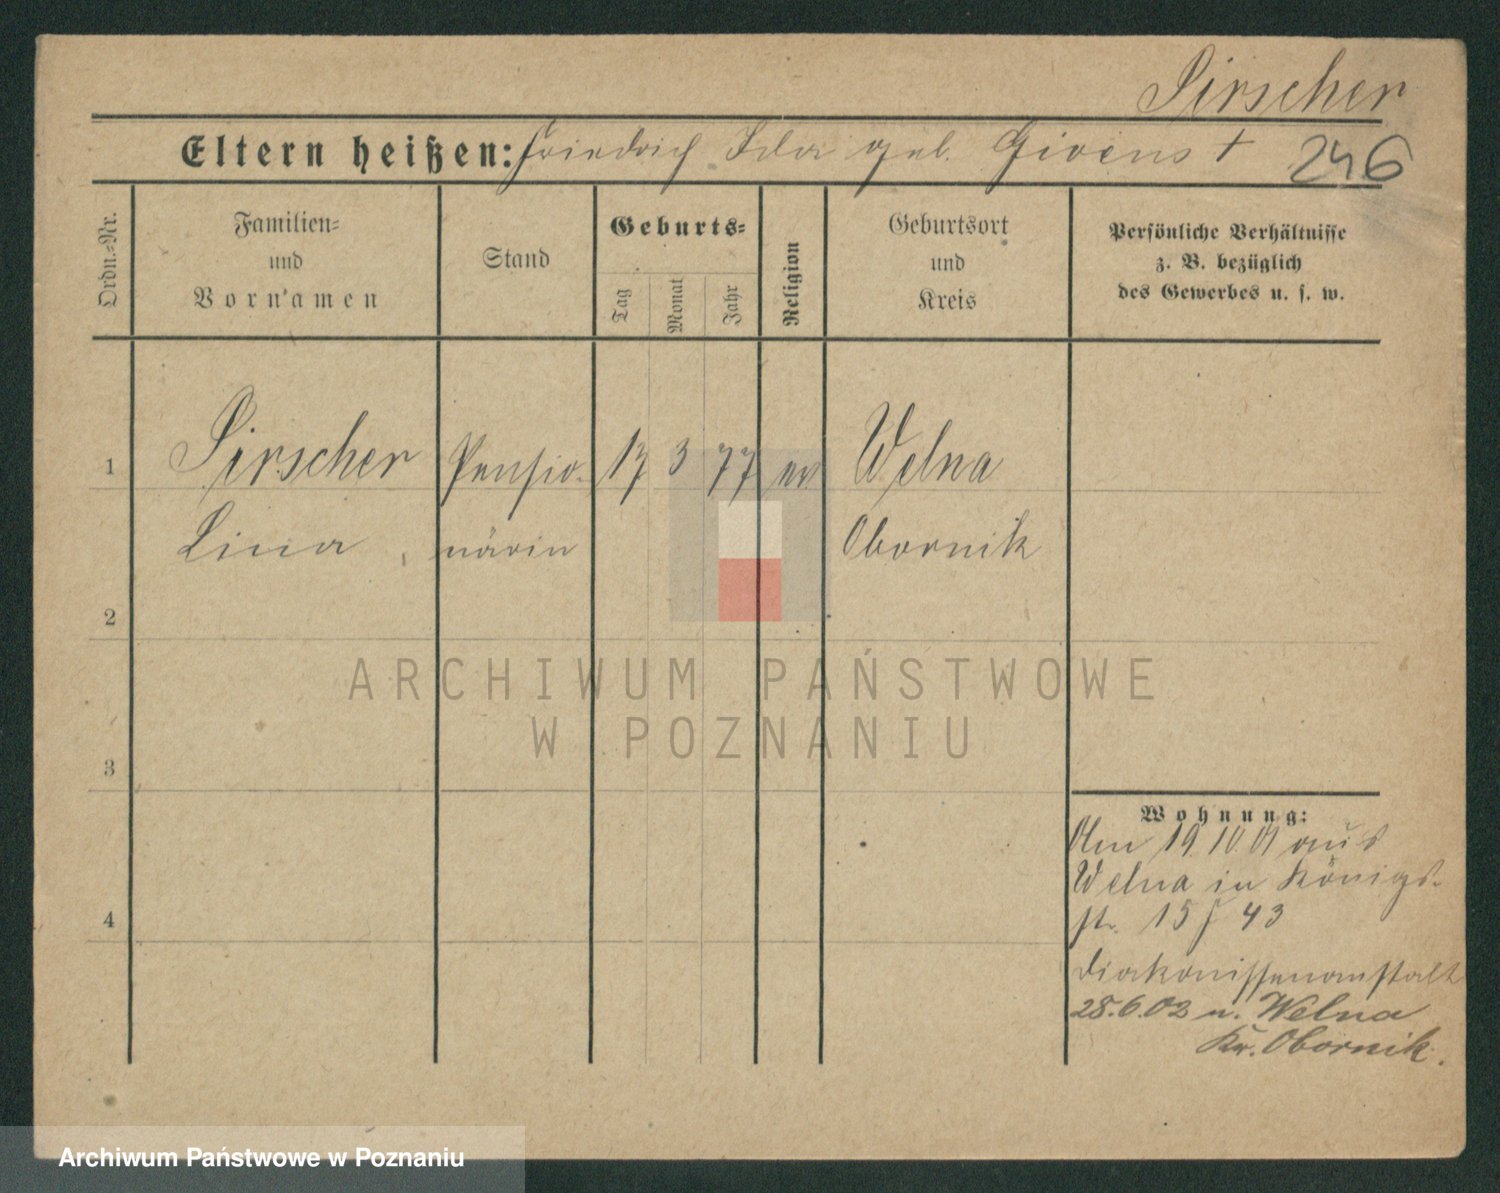 Pirscher
Eltern heißen: Friedrich Ida geb. Givens †
246
Ordn.-Nr.
Familien-
und
Vornamen
Stand
Geburts-
Tag
Monat
Jahr
Religion
Geburtsort
und
Kreis
Persönliche Verhältnisse
z. B. bezüglich
des Gewerbes u. s. w.
1 Pirscher Pensio- 17 3 77 ev Welna
Lina närin Obornik
2
ARCHIWUM PAŃSTWOWE
W POZNANIU
3
Wohnung:
Am 19.10.01 aus
Welna in Königs-
str. 15 f 43
4
Diakonissenanstalt
28.6.02 n. Welna
Kr. Obornik.
Archiwum Państwowe w Poznaniu